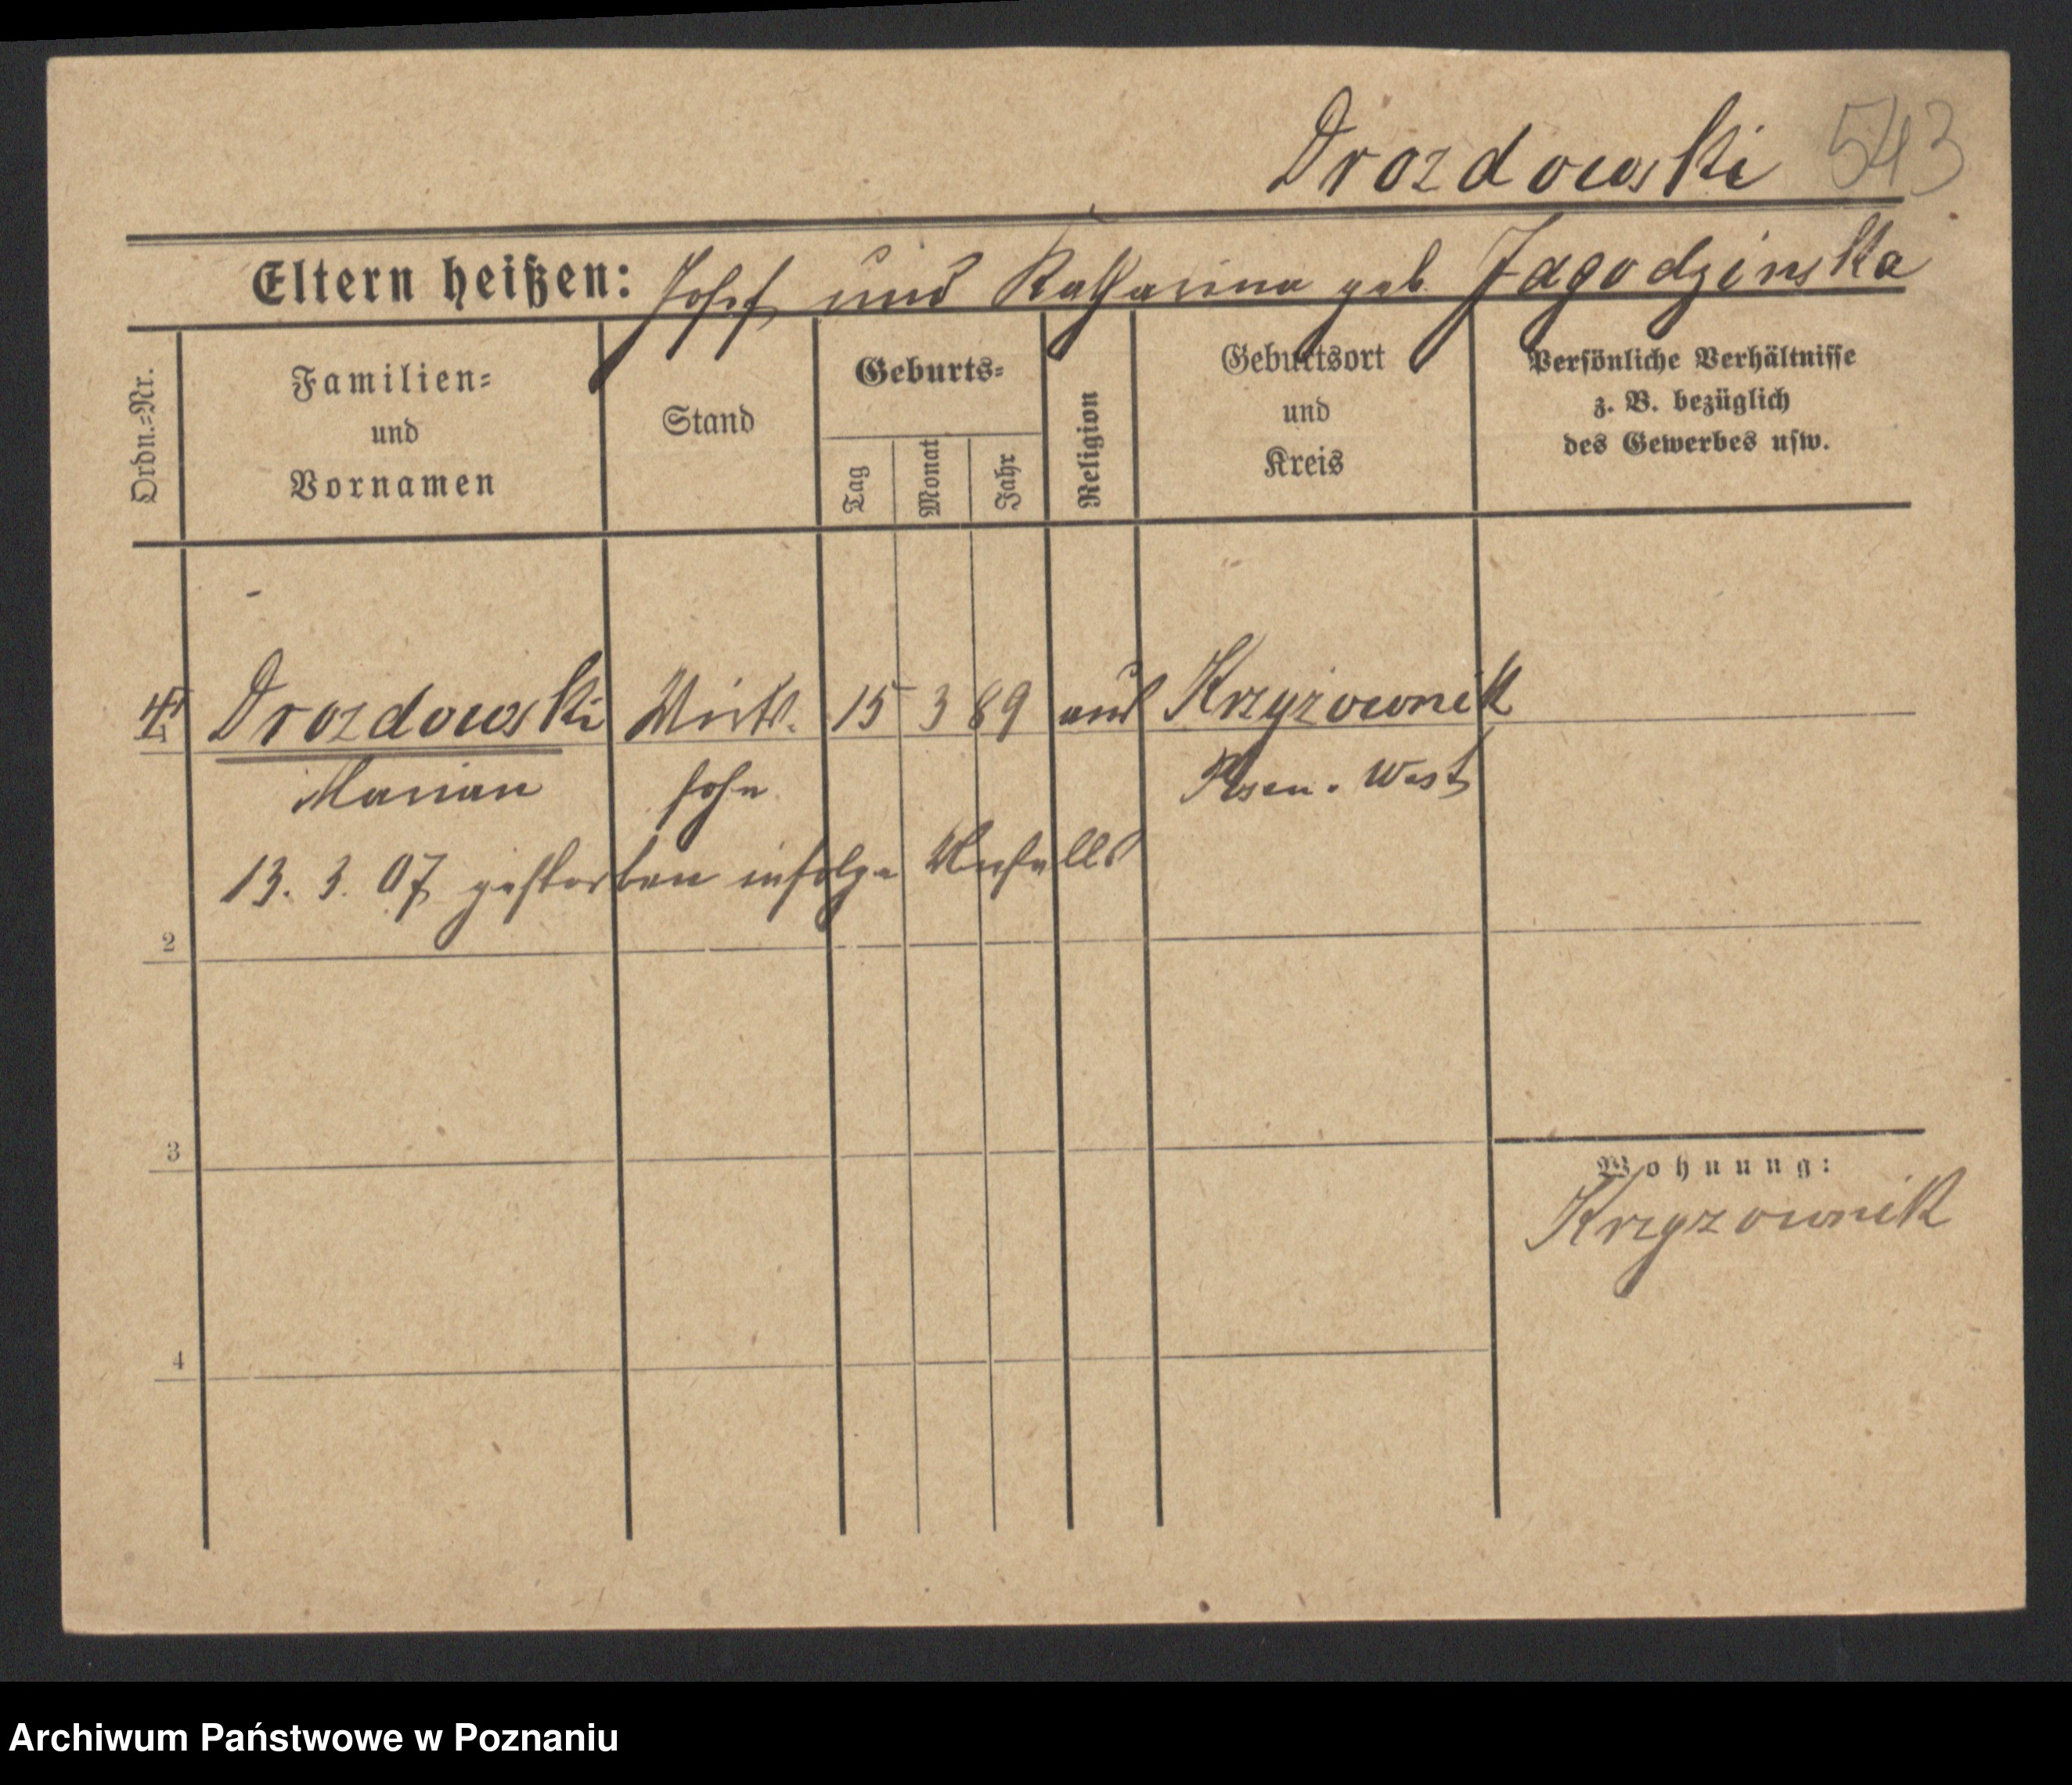 Drozdowski 543
Eltern heißen: Josef und Katharina geb. Jagodzinska
Ordn.-Nr.
Familien-
und
Vornamen
Stand
Geburts-
Tag
Monat
Jahr
Religion
Geburtsort
und
Kreis
Persönliche Verhältnisse
z. B. bezüglich
des Gewerbes usw.
Drozdowski Wirts- 15 3 89 Krzyzownik
Marian sohn Posen. West
13. 3. 07 gestorben infolge Unfalls
2
3
Wohnung:
Krzyzownik
4
Archiwum Państwowe w Poznaniu